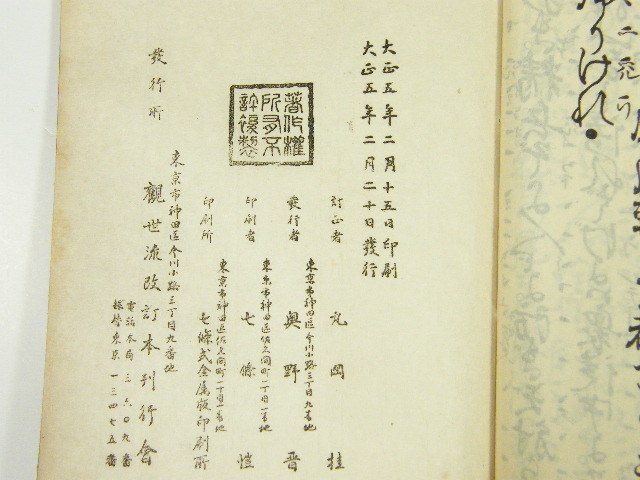 大正五年二月十五日印刷
大正五年二月二十日發行
著作權
所有不
許複製
訂正者 丸岡桂
東京市神田區今川小路三丁目九番地
發行者 奥野晋
東京市神田區佐久間町一丁目一番地
印刷者 七條愷
東京市神田區佐久間町一丁目一番地
印刷所 七條式金属版印刷所
發行所
東京市神田區今川小路三丁目九番地
觀世流改訂本刊行會
電話本局三六〇九番
振替東京一三四七五番